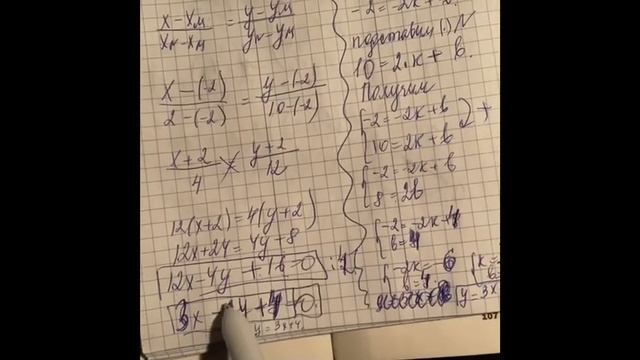 x-xм/xN-xм = y-yм/yN-yм
x-(-2)/2-(-2) = y-(-2)/10-(-2)
x+2/4 y+2/12
12(x+2)=4(y+2)
12x+24=4y+8
12x-4y+16=0 :4
3x y+4=0
y=3x+4
-2=-2k+
подставим (.) N
10=2·k+b.
Получим
{-2=-2k+b
10=2k+b +
{-2=-2k+b
8=2b
{-2=-2k+4
b=4
{-2k=-6
b=4
{k=
b=
y=3x
107